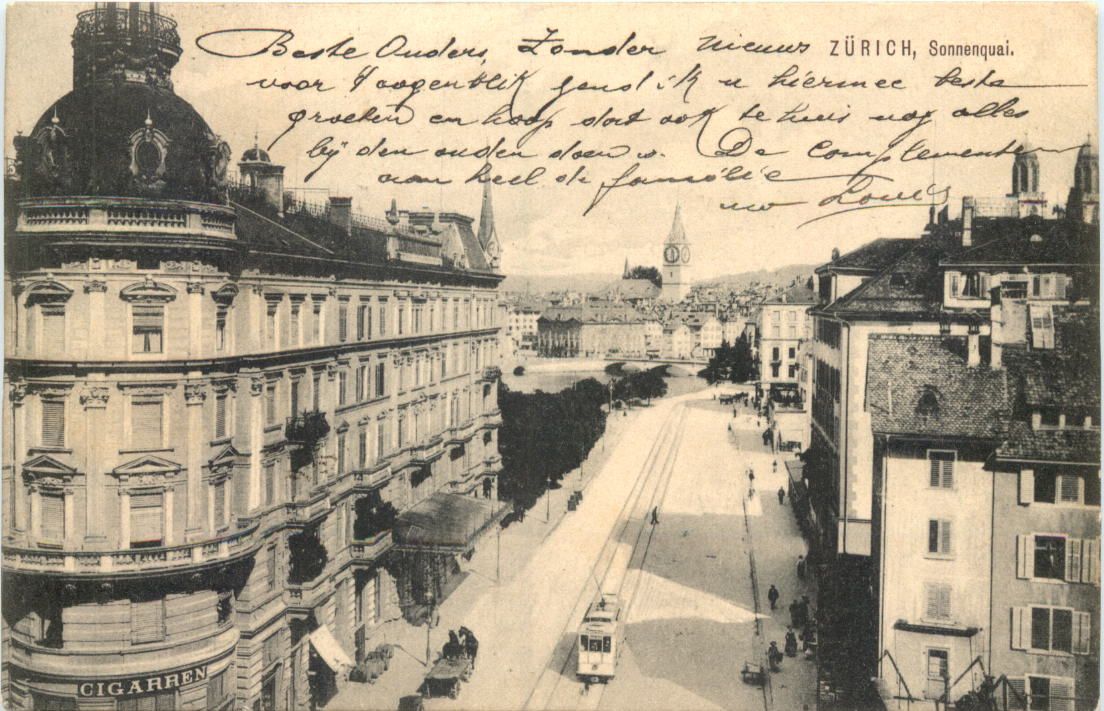 Beste Ouders, Zonder nieuws
ZÜRICH, Sonnenquai.
voor 't oogenblik zend ik u hiermee beste
groeten en hoop dat ook te huis nog alles
bij den ouden door is. De complementen
aan heel de familie
uw Louis
CIGARREN
5